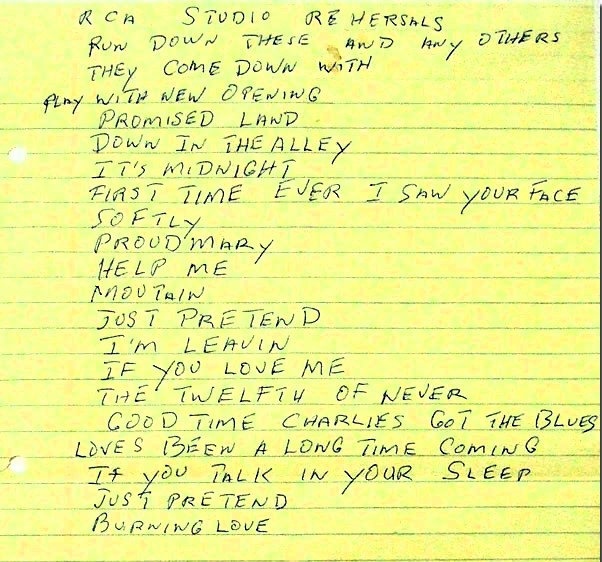 RCA STUDIO REHERSALS
RUN DOWN THESE AND ANY OTHERS
THEY COME DOWN WITH
PLAY WITH NEW OPENING
PROMISED LAND
DOWN IN THE ALLEY
IT'S MIDNIGHT
FIRST TIME EVER I SAW YOUR FACE
SOFTLY
PROUD MARY
HELP ME
MOUTAIN
JUST PRETEND
I'M LEAVIN
IF YOU LOVE ME
THE TWELFTH OF NEVER
GOOD TIME CHARLIES GOT THE BLUES
LOVES BEEN A LONG TIME COMING
IF YOU TALK IN YOUR SLEEP
JUST PRETEND
BURNING LOVE